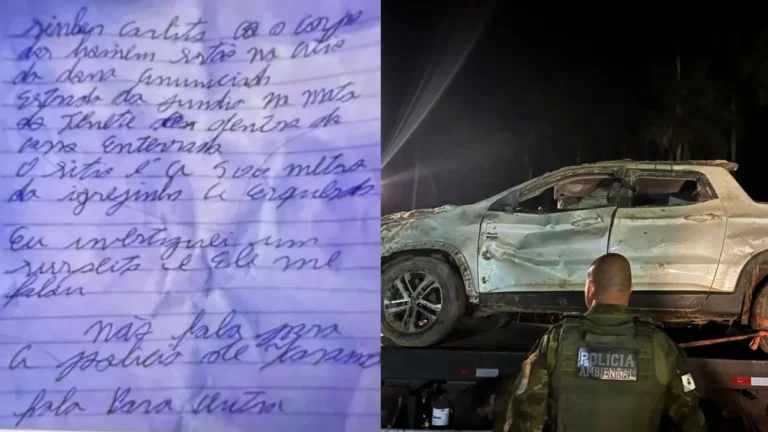 senhor Carlito os o corpo
dos homem estão no citio
da dona anunciada
Estrada da jundia na mata
do Tenete dentro do
carro Enterrado
O sitio é a 500 metro
da igrejinha a esquerda
Eu investiguei um
surpeito e Ele me
falou
não fala para
a policia de Icaraima
fala Para outra
POLÍCIA
AMBIENTAL